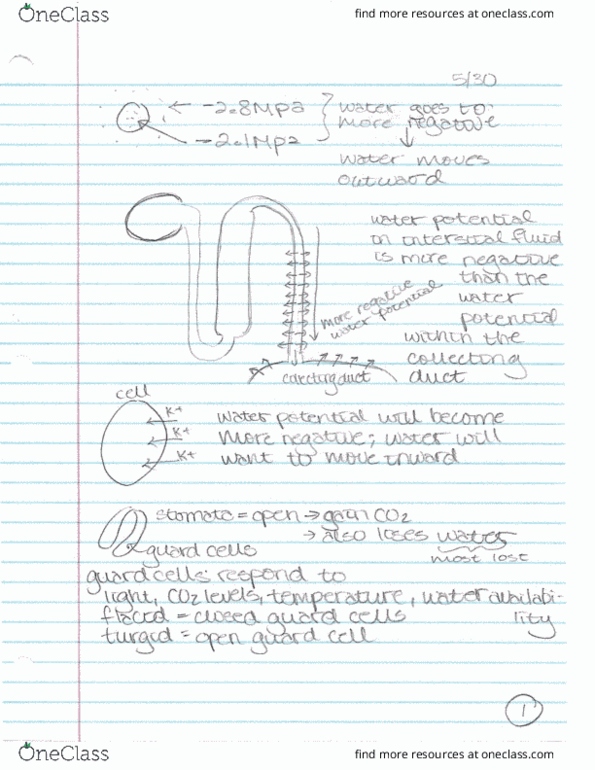 OneClass
find more resources at oneclass.com
5/30
← -2.8Mpa } water goes to
more negative
-2.1Mpa
water moves
outward
water potential
in interstial fluid
is more negative
than the
water
potential
within the
collecting
duct
more negative
water potential
collecting duct
cell
K+
K+
K+
water potential will become
more negative; water will
want to move inward
stomata = open → gain CO2
→ also loses water
most lost
guard cells
guard cells: respond to
light, CO2 levels, temperature, water availabi-
lity
flaccid = closed guard cells
turgid = open guard cell
1
OneClass
find more resources at oneclass.com